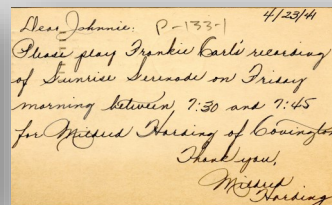 4/23/41
Dear Johnnie: P-133-1
Please play Frankie Carle's recording
of Sunrise Serenade on Friday
morning between 7:30 and 7:45
for Mildred Harding of Covington
Thank you,
Mildred
Harding